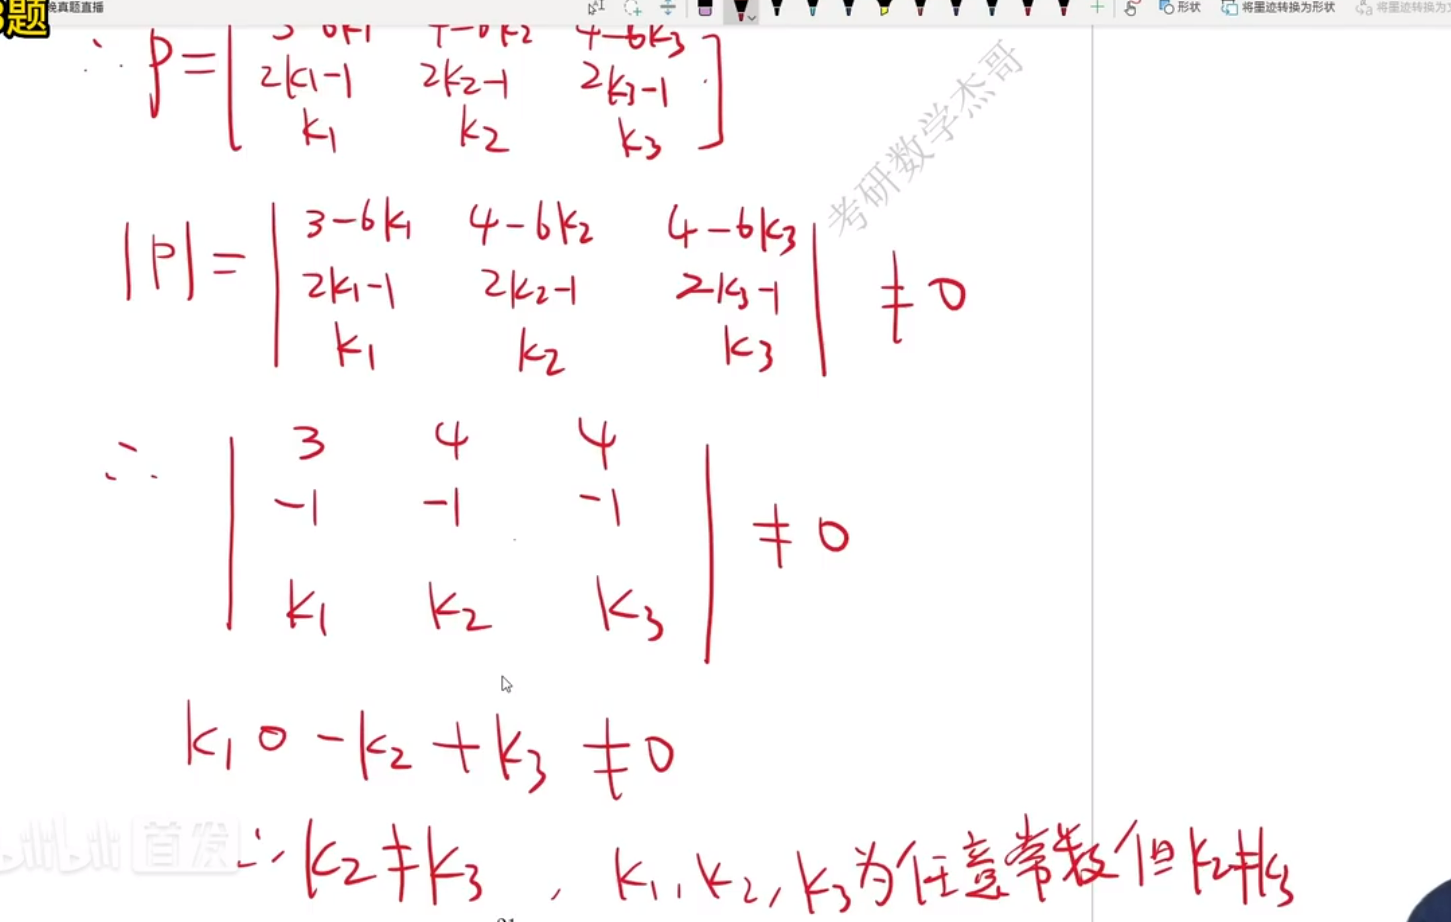 3题 晚真题直播
形状 将墨迹转换为形状
∴ P = [ 3-6k₁ 4-6k₂ 4-6k₃
2k₁-1 2k₂-1 2k₃-1
k₁ k₂ k₃ ]
考研数学杰哥
|P| = | 3-6k₁ 4-6k₂ 4-6k₃
2k₁-1 2k₂-1 2k₃-1 | ≠ 0
k₁ k₂ k₃
∴ | 3 4 4
-1 -1 -1 | ≠ 0
k₁ k₂ k₃
k₁ 0 - k₂ + k₃ ≠ 0
bilibili 首发
∴ k₂ ≠ k₃ , k₁, k₂, k₃为任意常数但 k₂≠k₃